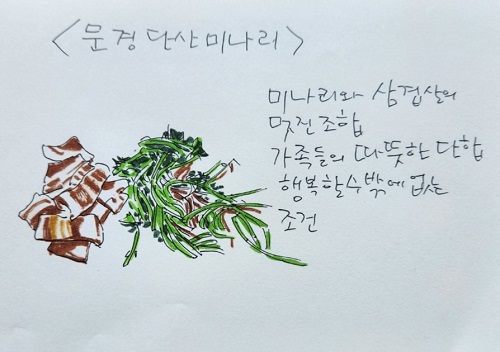 <문경단산미나리>
미나리와 삼겹살의
멋진조합
가족들의 따뜻한 단합
행복할수밖에 없는
조건